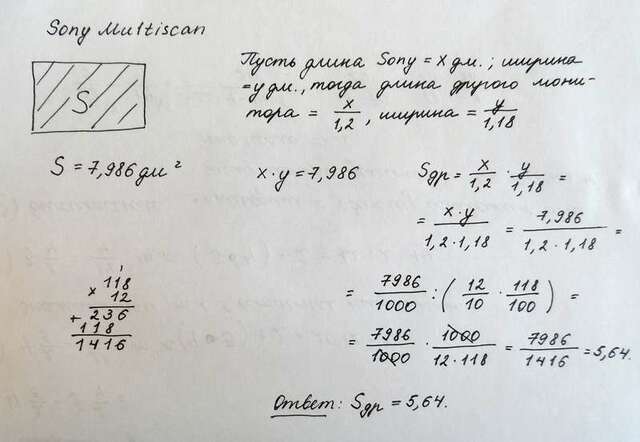 Sony Multiscan
S
Пусть длина Sony = x дм.; ширина
= y дм., тогда длина другого мони-
тора = x/1,2, ширина = y/1,18
S = 7,986 дм²
x · y = 7,986
Sдр = x/1,2 · y/1,18 =
= x·y/1,2·1,18 = 7,986/1,2·1,18 =
= 7986/1000 : (12/10 · 118/100) =
= 7986/1000 · 1000/12·118 = 7986/1416 = 5,64.
1
118
× 12
+ 236
118
1416
Ответ: Sдр = 5,64.